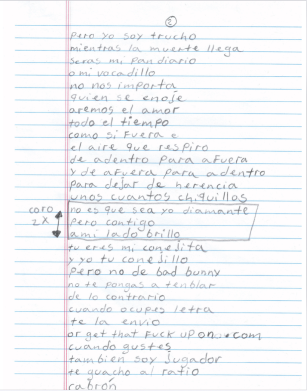 2
pero yo soy trucho
mientras la muerte llega
seras mi pan diario
o mi vocadillo
no nos importa
quien se enoje
aremos el amor
todo el tiempo
como si fuera e
el aire que respiro
de adentro para afuera
y de afuera para adentro
para dejar de herencia
unos cuantos chiquillos
coro 2x
no es que sea yo diamante
pero contigo
a mi lado brillo
tu eres mi conejita
y yo tu conejillo
pero no de bad bunny
no te pongas a tenblar
de lo contrario
cuando ocupes letra
te la envio
or get that Fuck up on .com
cuando gustes
tambien soy jugador
te guacho al ratio
cabron